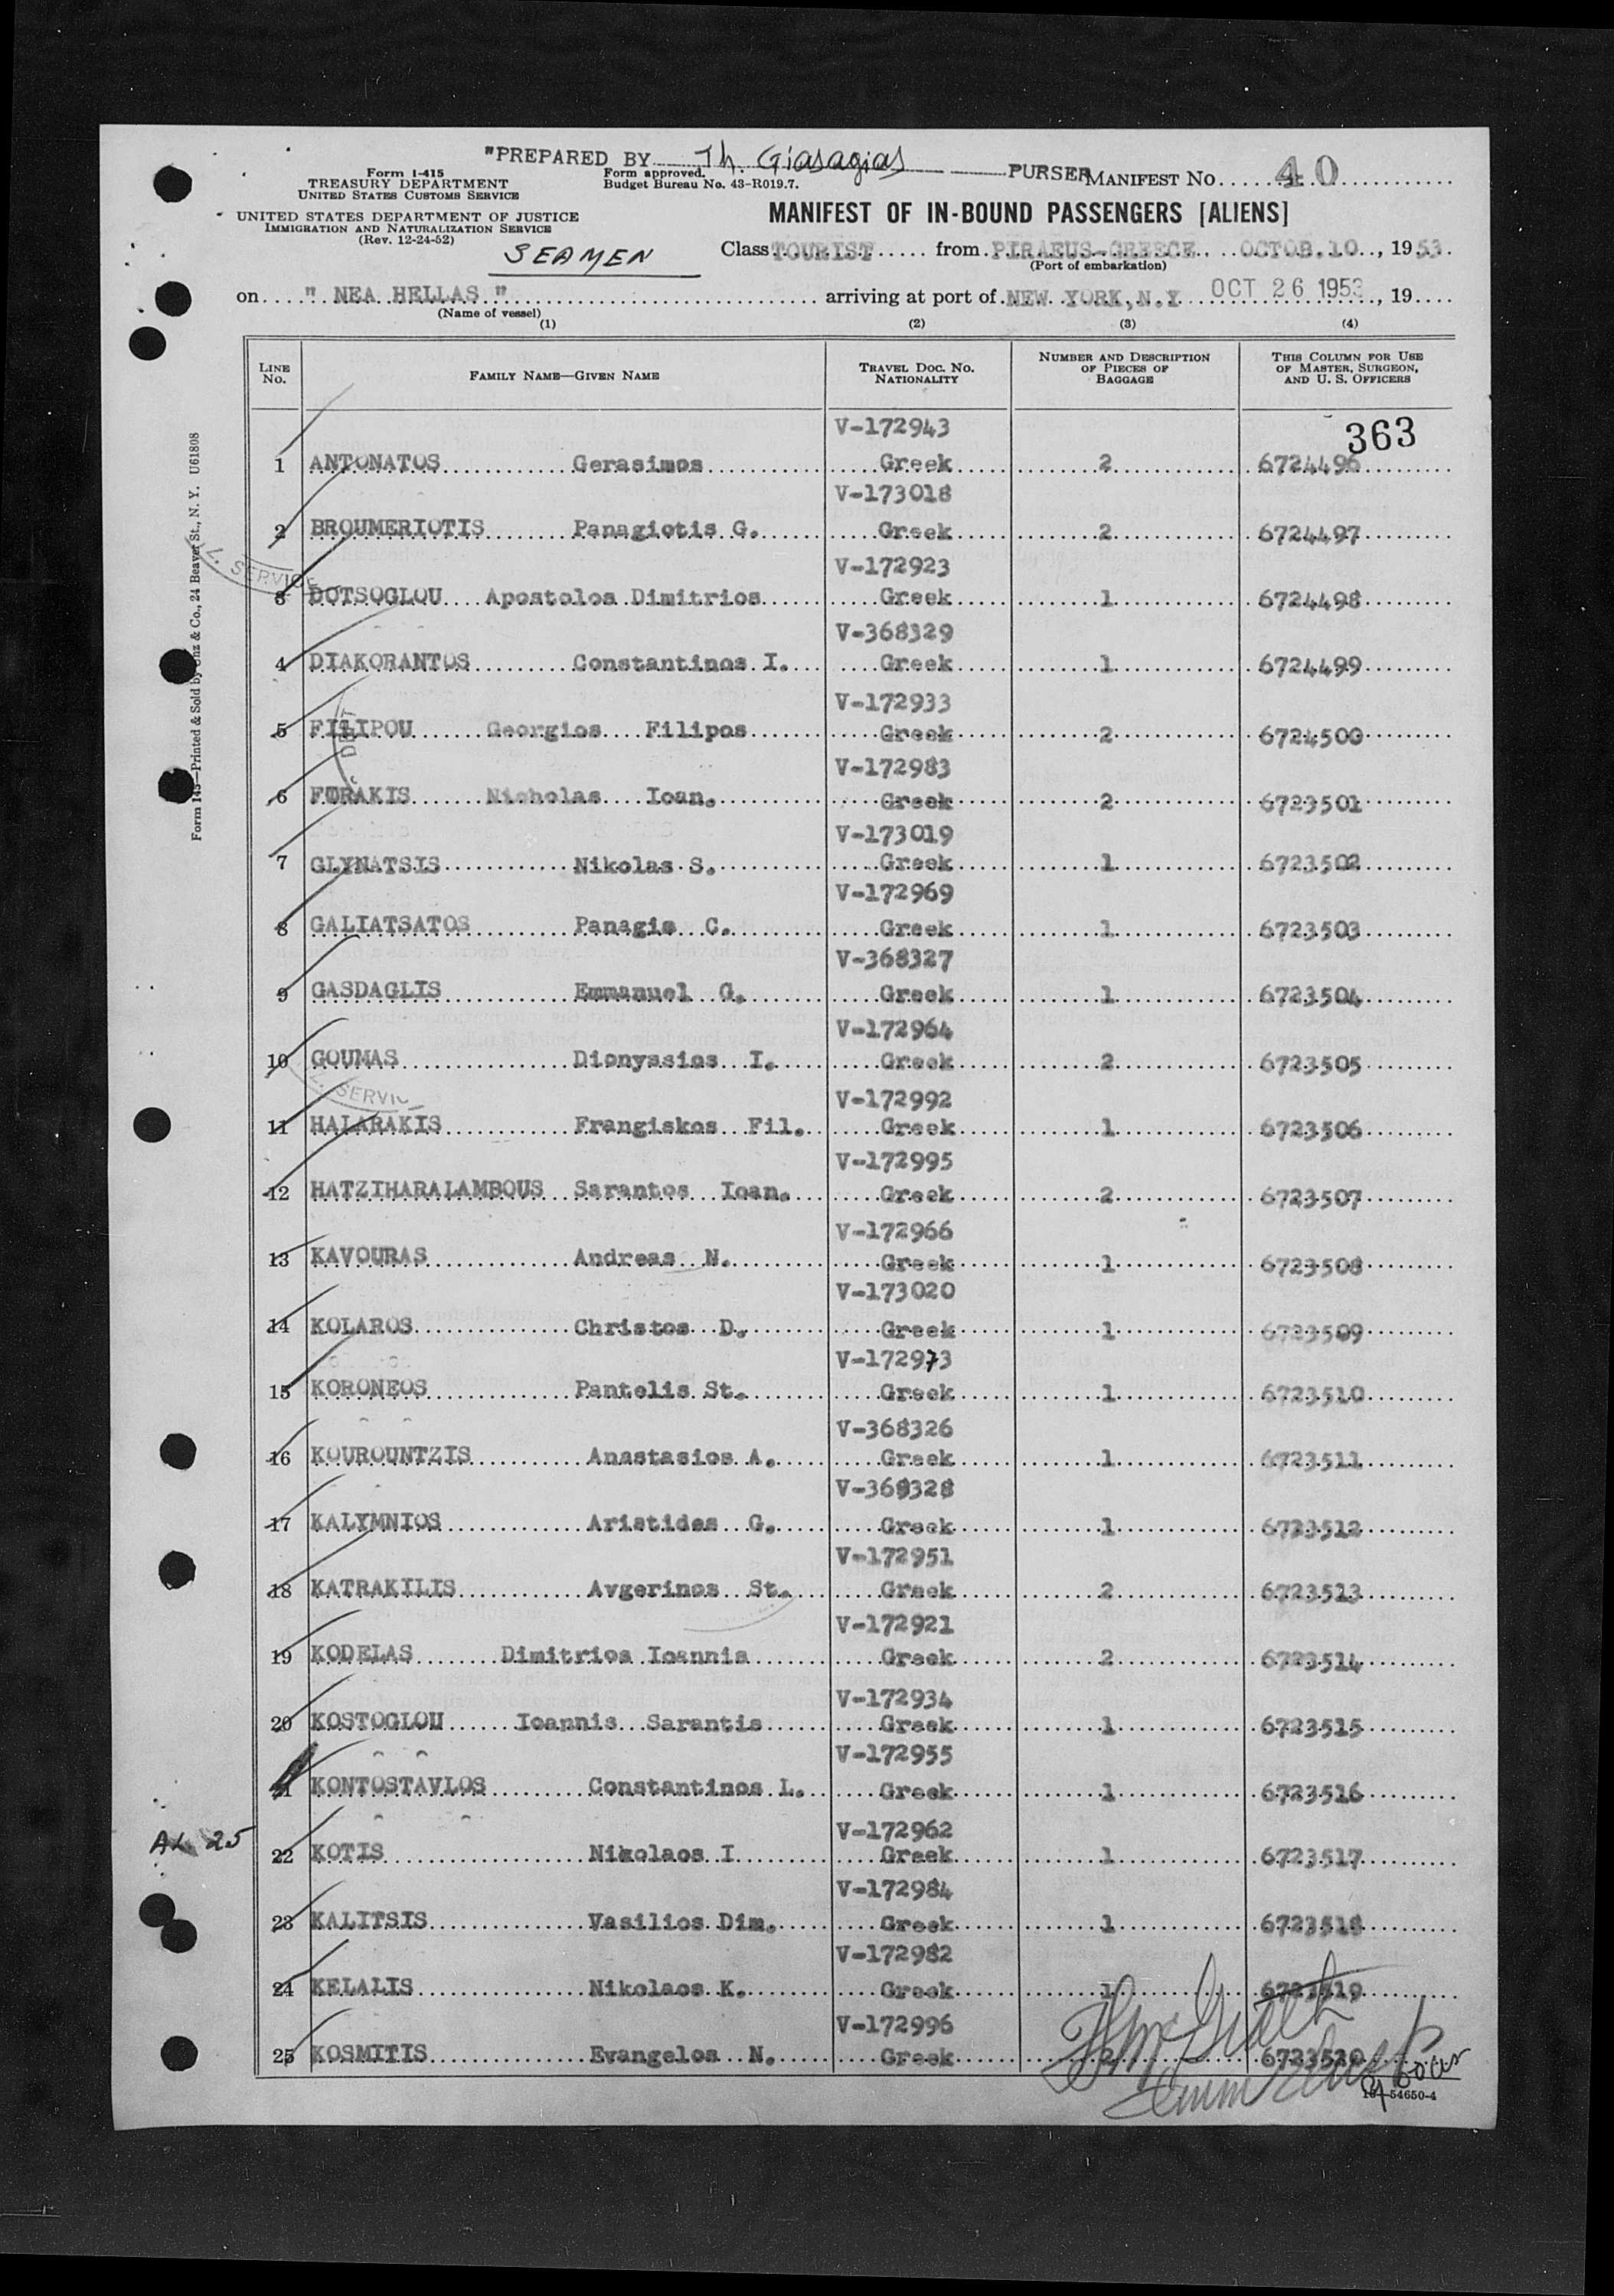 "PREPARED BY Th. Giasagias PURSER
Form I-415
TREASURY DEPARTMENT
UNITED STATES CUSTOMS SERVICE
Form approved.
Budget Bureau No. 43-R019.7.
MANIFEST NO. 40
UNITED STATES DEPARTMENT OF JUSTICE
IMMIGRATION AND NATURALIZATION SERVICE
(Rev. 12-24-52)
MANIFEST OF IN-BOUND PASSENGERS [ALIENS]
SEAMEN
Class TOURIST from PIRAEUS-GREECE OCTOB.10, 1953.
(Port of embarkation)
on " NEA HELLAS " arriving at port of NEW YORK, N.Y OCT 26 1953, 19
(Name of vessel)
(1) (2) (3) (4)
LINE NO. FAMILY NAME—GIVEN NAME TRAVEL DOC. NO. NATIONALITY NUMBER AND DESCRIPTION OF PIECES OF BAGGAGE THIS COLUMN FOR USE OF MASTER, SURGEON, AND U. S. OFFICERS
V-172943 363
1 ANTONATOS Gerasimos Greek 2 6724496
V-173018
2 BROUMERIOTIS Panagiotis G. Greek 2 6724497
V-172923
3 DOTSOGLOU Apostolos Dimitrios Greek 1 6724498
V-368329
4 DIAKORANTOS Constantinos I. Greek 1 6724499
V-172933
5 FILIPOU Georgios Filipos Greek 2 6724500
V-172983
6 FORAKIS Nicholas Ioan. Greek 2 6723501
V-173019
7 GLYNATSIS Nikolas S. Greek 1 6723502
V-172969
8 GALIATSATOS Panagis C. Greek 1 6723503
V-368327
9 GASDAGLIS Emmanuel G. Greek 1 6723504
V-172964
10 GOUMAS Dionyssios I. Greek 2 6723505
V-172992
11 HALARAKIS Frangiskos Fil. Greek 1 6723506
V-172995
12 HATZIHARALAMBOUS Sarantos Ioan. Greek 2 6723507
V-172966
13 KAVOURAS Andreas N. Greek 1 6723508
V-173020
14 KOLAROS Christos D. Greek 1 6723509
V-172973
15 KORONEOS Pantelis St. Greek 1 6723510
V-368326
16 KOUROUNTZIS Anastasios A. Greek 1 6723511
V-368328
17 KALYMNIOS Aristides G. Greek 1 6723512
V-172951
18 KATRAKILIS Avgerinos St. Greek 2 6723513
V-172921
19 KODELAS Dimitrios Ioannis Greek 2 6723514
V-172934
20 KOSTOGLOU Ioannis Sarantis Greek 1 6723515
V-172955
21 KONTOSTAVLOS Constantinos L. Greek 1 6723516
V-172962
22 KOTIS Nikolaos I Greek 1 6723517
V-172984
23 KALITSIS Vasilios Dim. Greek 1 6723518
V-172982
24 KELALIS Nikolaos K. Greek 1 6723519
V-172996
25 KOSMITIS Evangelos N. Greek 2 6723520
16—54650-4
AL 25
Form 145—Printed & Sold by Unz & Co., 24 Beaver St., N. Y. U61808
L. SERVICE